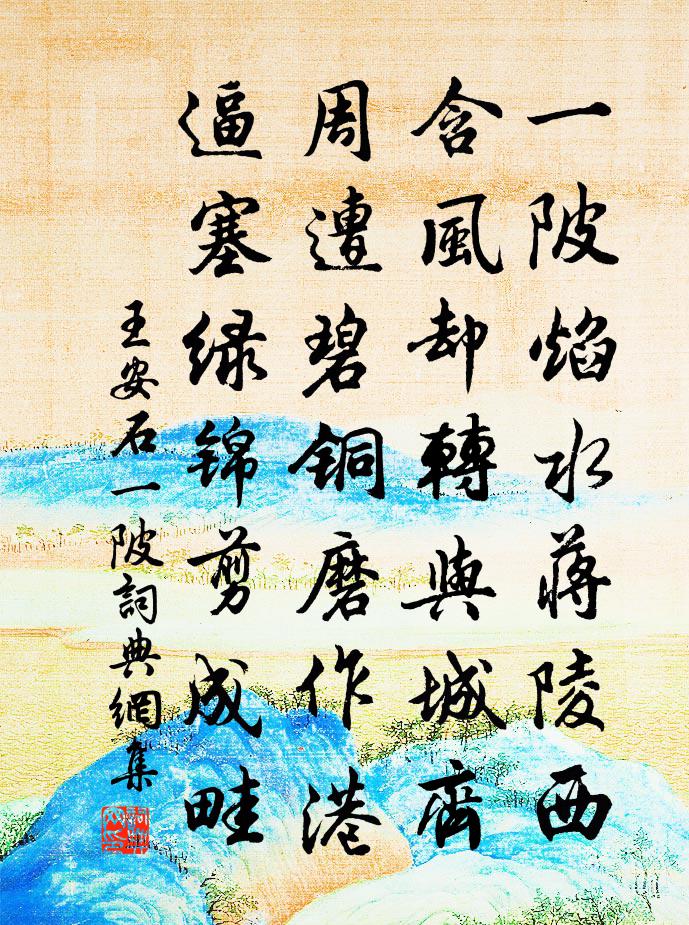 一陂焰水蔣陵西
含風却轉與城齊
周遭碧铜磨作港
逼塞绿锦剪成畦
王安石一陂詞典網集